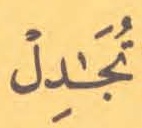 تُجَٰدِلْ